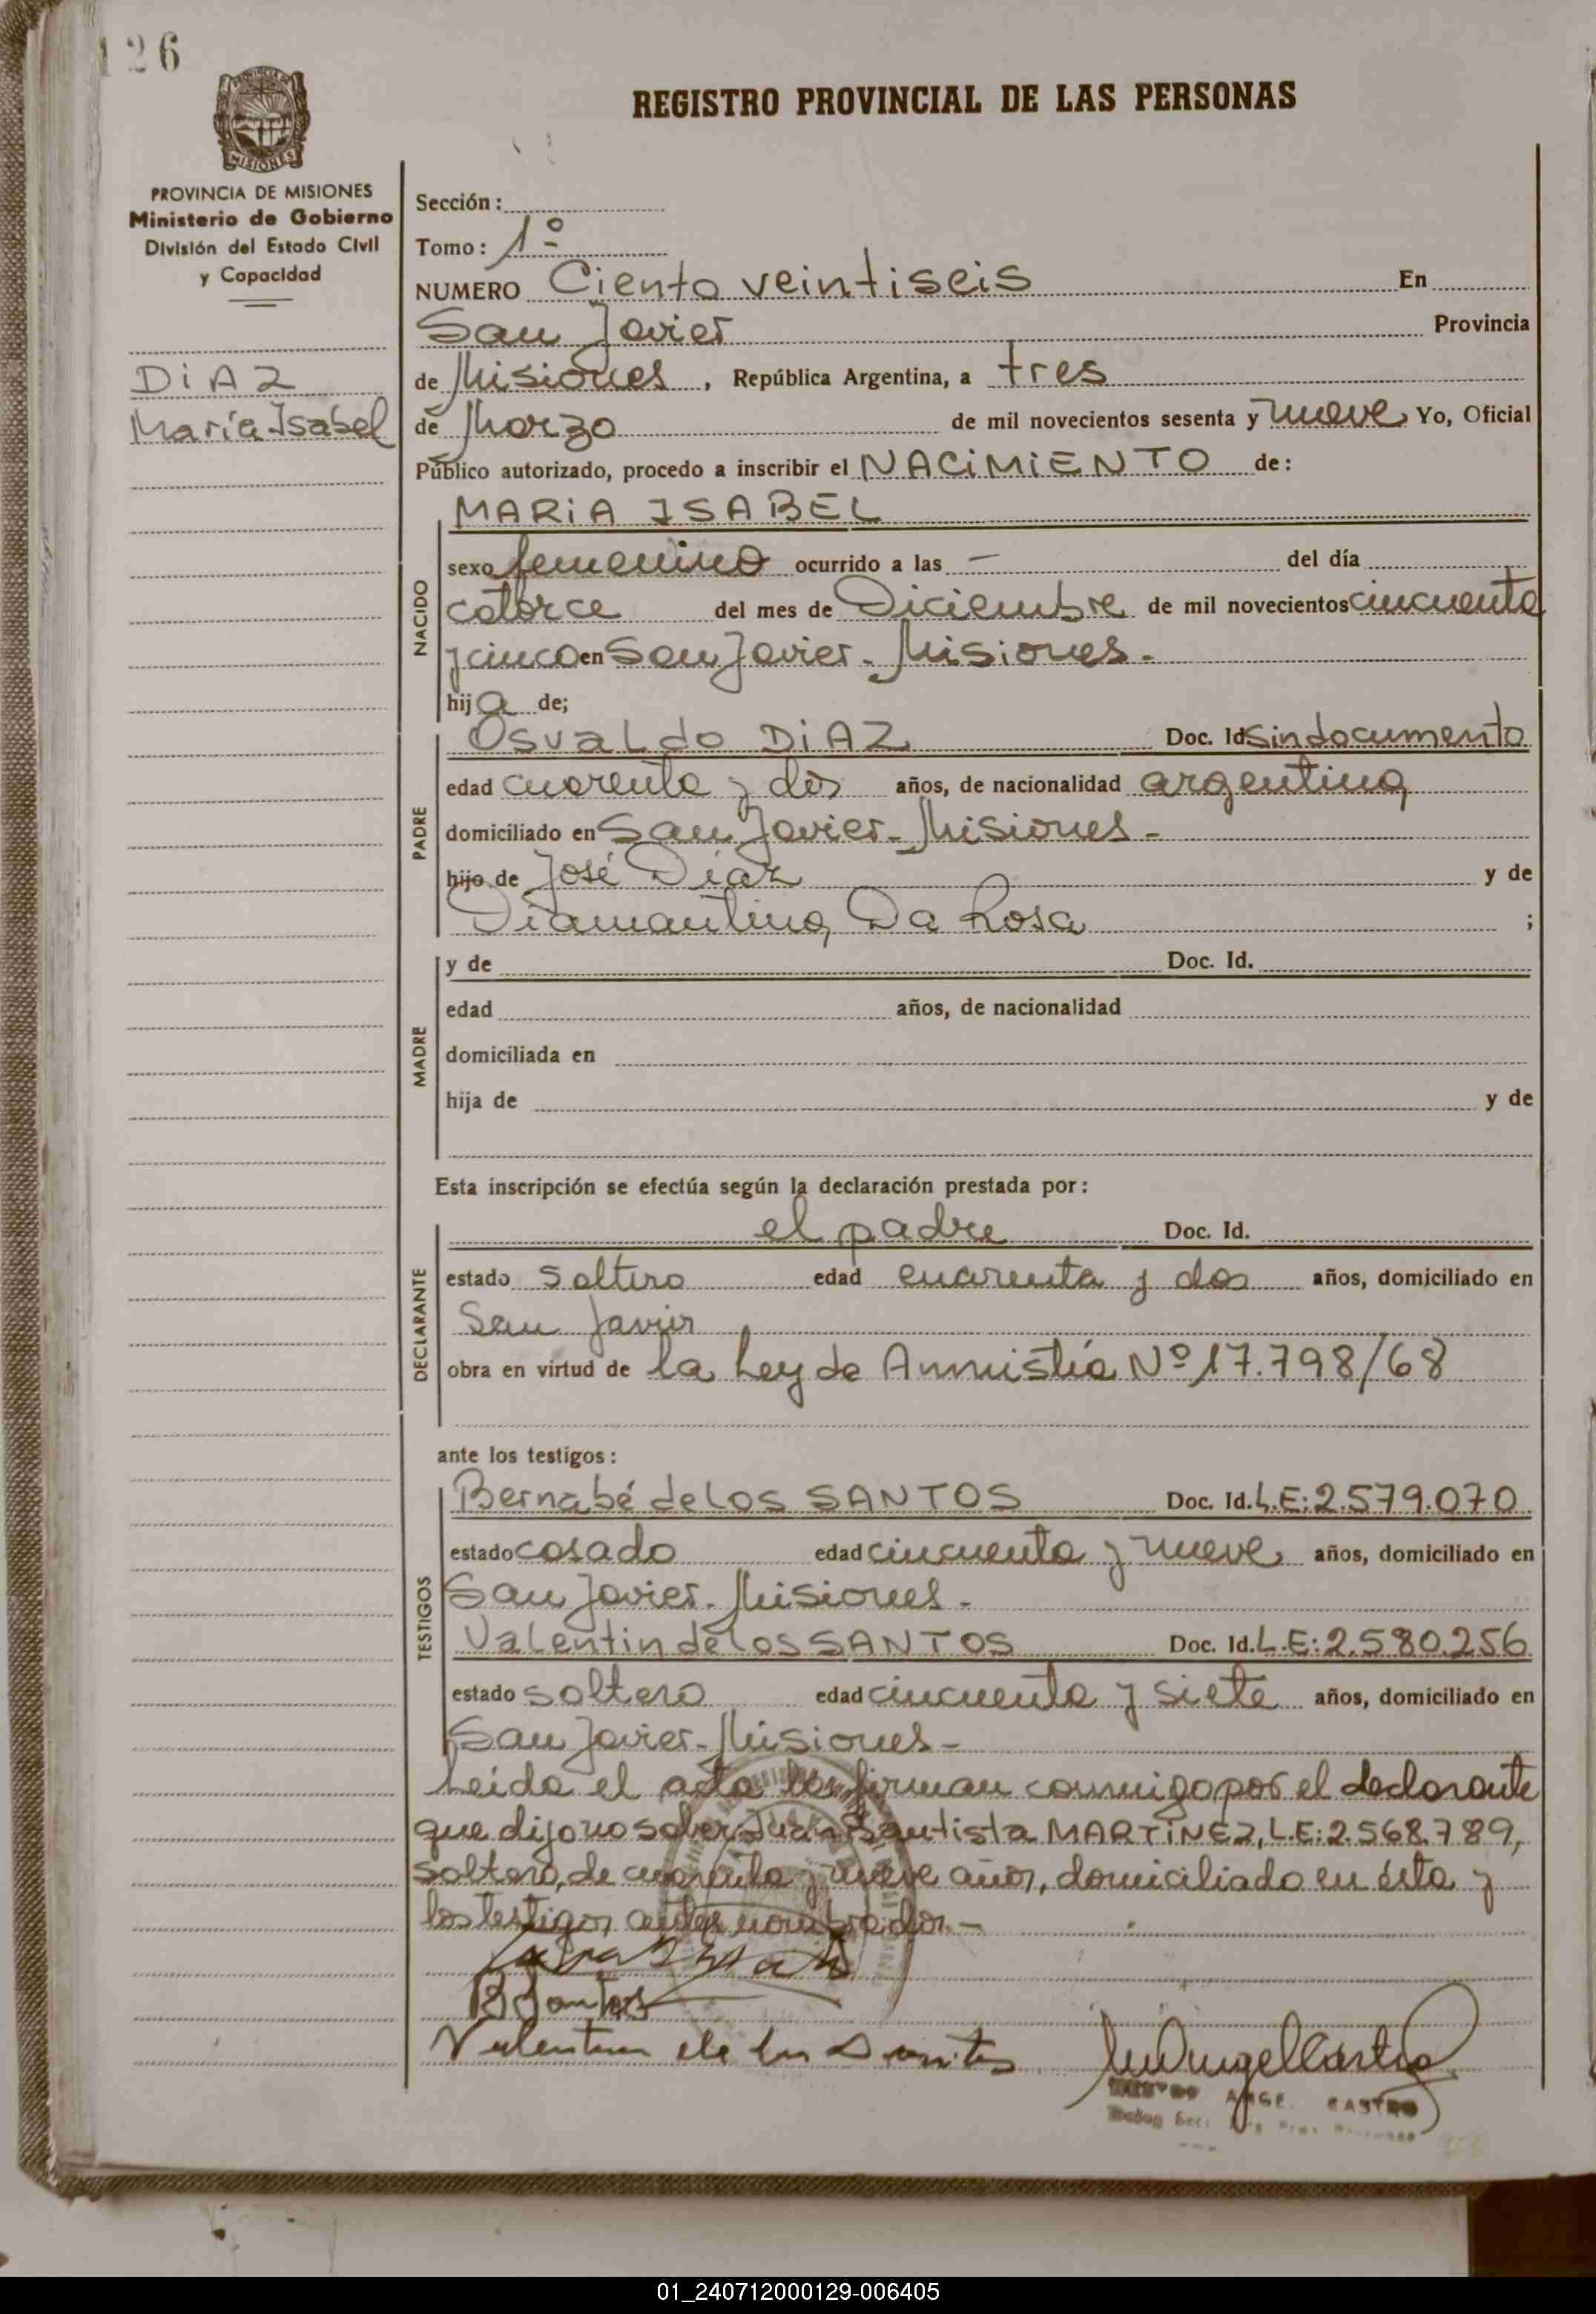 126
REGISTRO PROVINCIAL DE LAS PERSONAS
MISIONES
PROVINCIA DE MISIONES
Ministerio de Gobierno
División del Estado Civil
y Capacidad
DiAZ
María Isabel
Sección:
Tomo: 1º
NUMERO Ciento veintiseis En
San Javier Provincia
de Misiones, República Argentina, a tres
de Marzo de mil novecientos sesenta y nueve Yo, Oficial
Público autorizado, procedo a inscribir el NACiMiENTO de:
NACIDO
MARiA ISABEL
sexo femenino ocurrido a las — del día
catorce del mes de Diciembre de mil novecientos cincuenta
y cinco en San Javier - Misiones -
hija de;
PADRE
Osvaldo DiAZ Doc. Id. Sin documento
edad cuarenta y dos años, de nacionalidad argentina
domiciliado en San Javier - Misiones -
hijo de José Díaz y de
Diamantina Da Rosa ;
MADRE
y de Doc. Id.
edad años, de nacionalidad
domiciliada en
hija de y de
Esta inscripción se efectúa según la declaración prestada por:
DECLARANTE
el padre Doc. Id.
estado soltero edad cuarenta y dos años, domiciliado en
San Javier
obra en virtud de la Ley de Amnistía Nº 17.798/68
ante los testigos:
TESTIGOS
Bernabé de Los SANTOS Doc. Id. L.E: 2.579.070
estado casado edad cincuenta y nueve años, domiciliado en
San Javier - Misiones -
Valentin de los SANTOS Doc. Id. L.E: 2.580.256
estado soltero edad cincuenta y siete años, domiciliado en
San Javier - Misiones -
Leída el acta la firman conmigo por el declarante
que dijo no saber Juan Bautista MARTíNEZ, L.E: 2.568.789,
soltero, de cuarenta y nueve años, domiciliado en ésta y
los testigos antes nombrados -
B Santos
Valentin de los Santos
ANGEL CASTRO
01_240712000129-006405